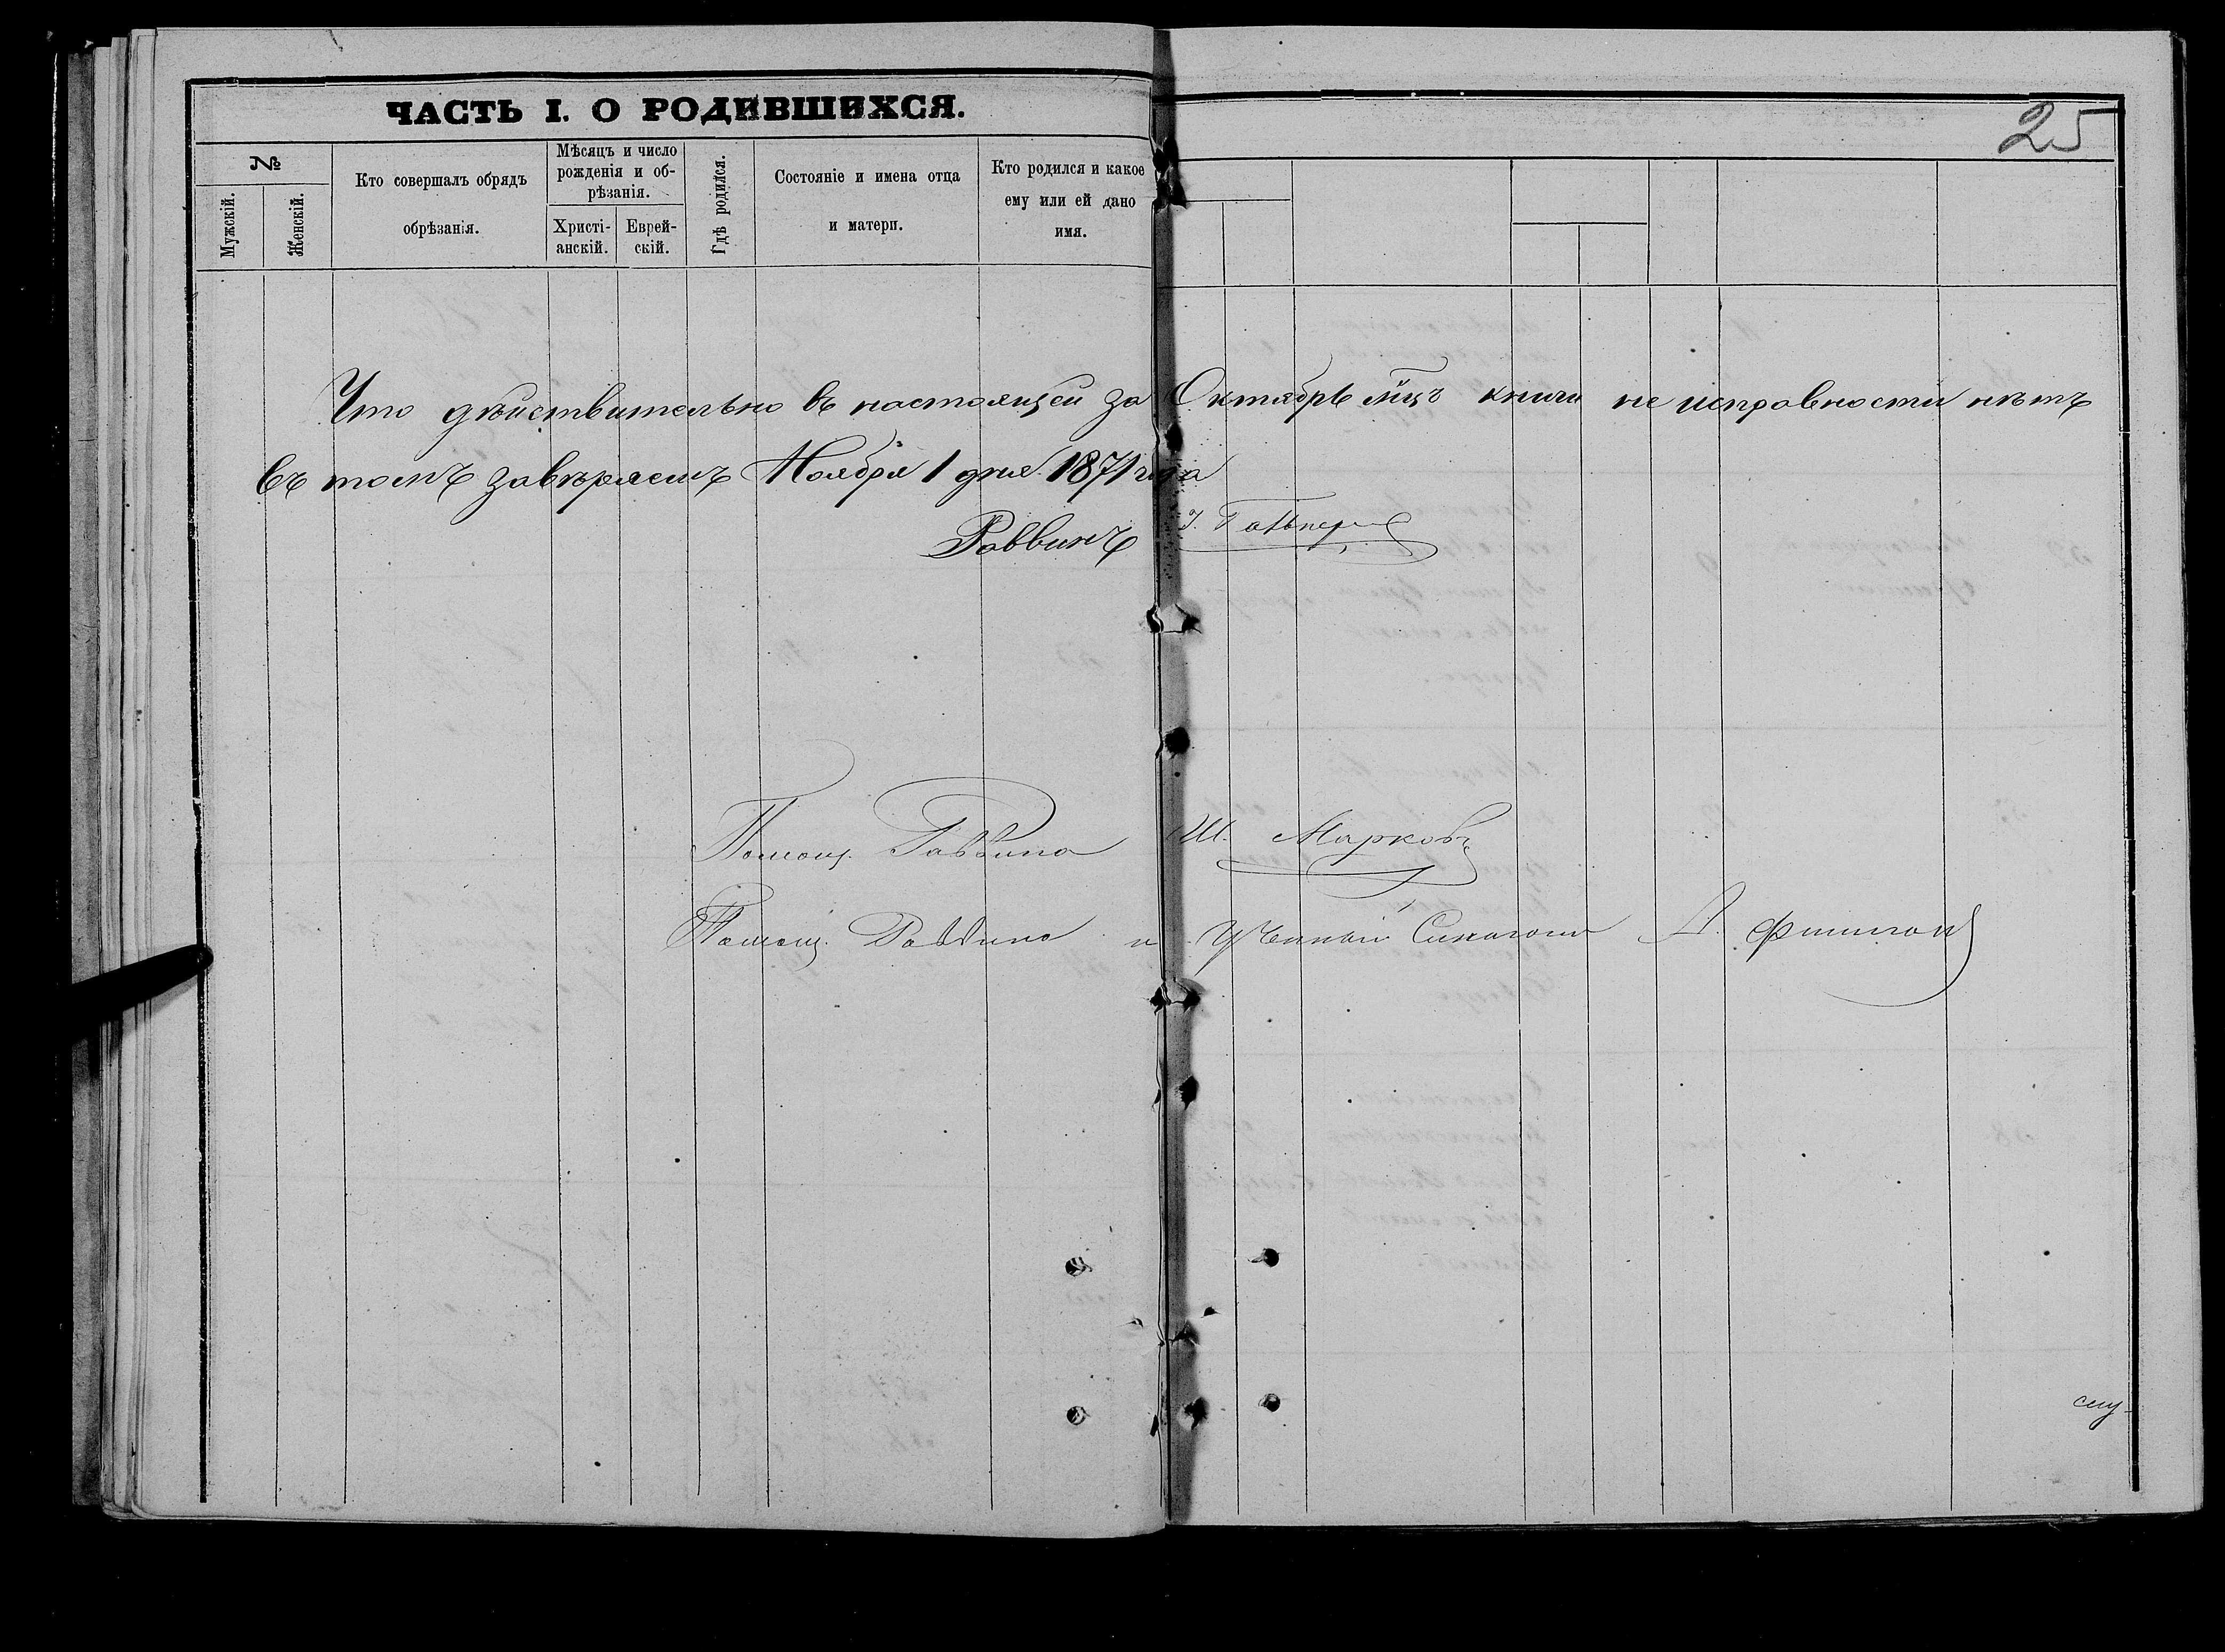 ЧАСТЬ I. О РОДИВШИХСЯ.
25
№
Мужскій.
Женскій.
Кто совершалъ обрядъ
обрѣзанія.
Мѣсяцъ и число
рожденія и об-
рѣзанія.
Христі-
анскій.
Еврей-
скій.
Гдѣ родился.
Состояніе и имена отца
и матери.
Кто родился и какое
ему или ей дано
имя.
Что дѣйствительно въ настоящей за Октябрь мцъ книги не исправности нѣтъ
въ томъ завѣряемъ Ноября 1 дня 1871 года
Раввинъ
Помощ. Раввина Ш. Марковъ
Помощ. Раввина и Ученный Синагоги